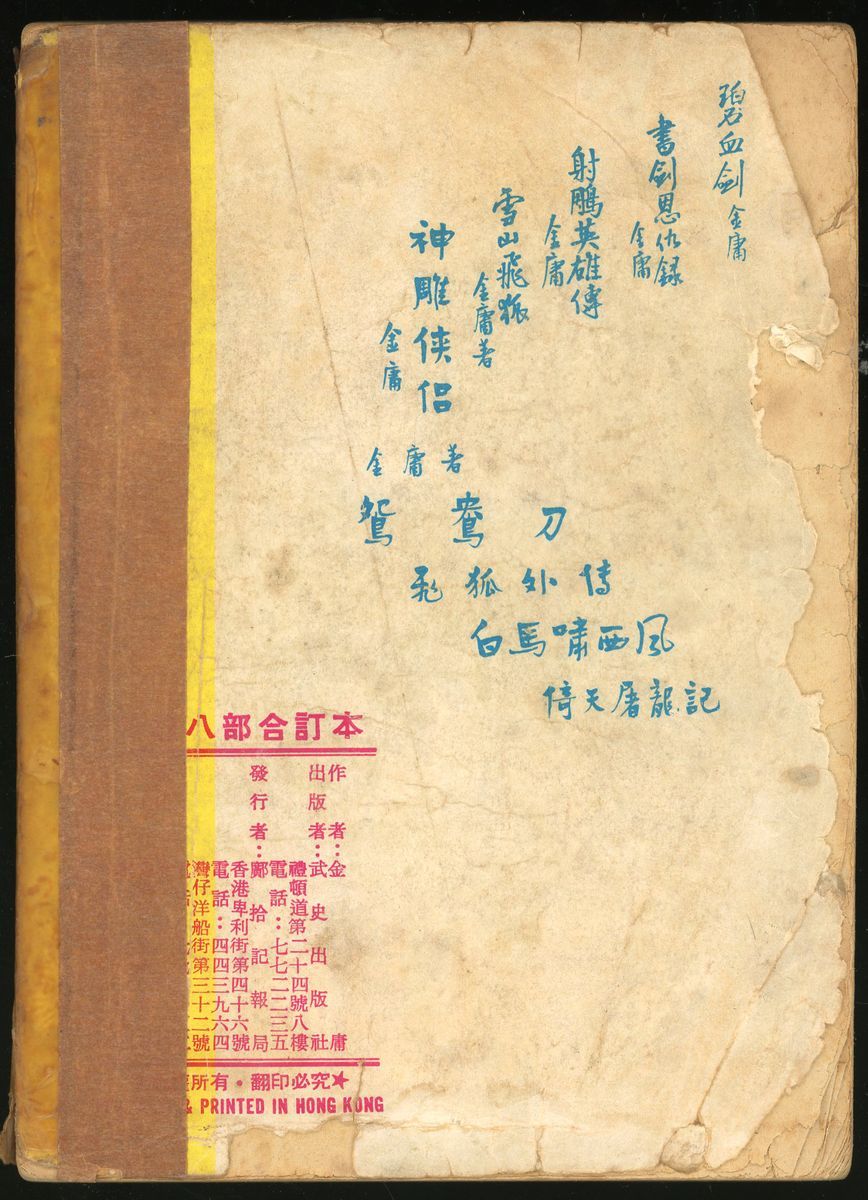 碧血劍 金庸
書劍恩仇録
金庸
射鵰英雄傳
金庸
雪山飛狐
金庸著
神雕俠侣
金庸
金庸著
鴛鴦刀
飛狐外傳
白馬嘯西風
倚天屠龍記
八部合訂本
作者：金庸
出版者：武史出版社
禮頓道第二十四號八樓
電話：七七二二三五
發行者：鄺拾記報局
香港卑利街第四十六號
電話：四四三九六四
灣仔洋船街第三十二號
所有・翻印必究★
& PRINTED IN HONG KONG